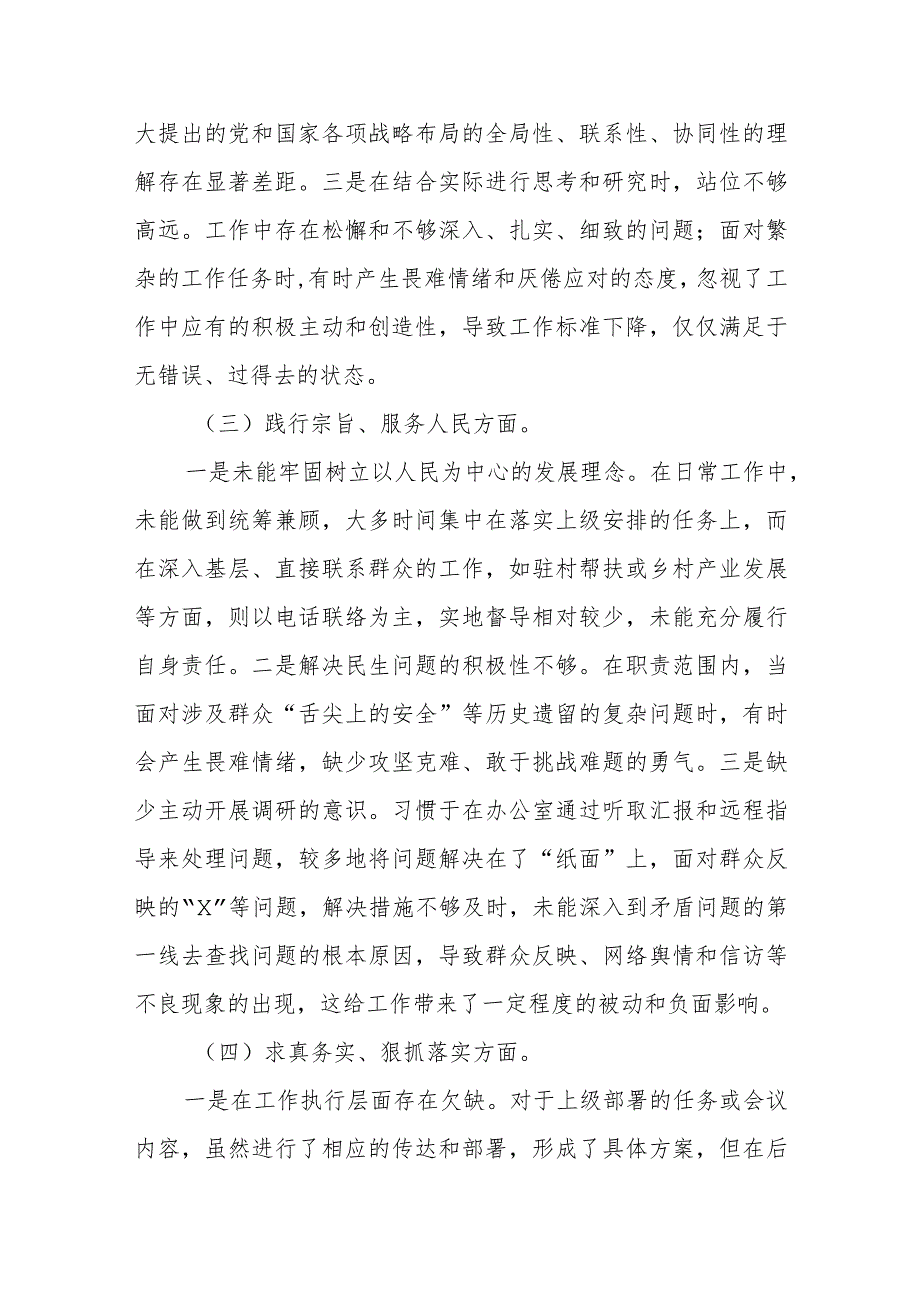 大提出的党和国家各项战略布局的全局性、联系性、协同性的理
解存在显著差距。三是在结合实际进行思考和研究时，站位不够
高远。工作中存在松懈和不够深入、扎实、细致的问题；面对繁
杂的工作任务时,有时产生畏难情绪和厌倦应对的态度，忽视了工
作中应有的积极主动和创造性，导致工作标准下降，仅仅满足于
无错误、过得去的状态。
（三）践行宗旨、服务人民方面。
一是未能牢固树立以人民为中心的发展理念。在日常工作中，
未能做到统筹兼顾，大多时间集中在落实上级安排的任务上，而
在深入基层、直接联系群众的工作，如驻村帮扶或乡村产业发展
等方面，则以电话联络为主，实地督导相对较少，未能充分履行
自身责任。二是解决民生问题的积极性不够。在职责范围内，当
面对涉及群众“舌尖上的安全”等历史遗留的复杂问题时，有时
会产生畏难情绪，缺少攻坚克难、敢于挑战难题的勇气。三是缺
少主动开展调研的意识。习惯于在办公室通过听取汇报和远程指
导来处理问题，较多地将问题解决在了“纸面”上，面对群众反
映的“X”等问题，解决措施不够及时，未能深入到矛盾问题的第
一线去查找问题的根本原因，导致群众反映、网络舆情和信访等
不良现象的出现，这给工作带来了一定程度的被动和负面影响。
（四）求真务实、狠抓落实方面。
一是在工作执行层面存在欠缺。对于上级部署的任务或会议
内容，虽然进行了相应的传达和部署，形成了具体方案，但在后